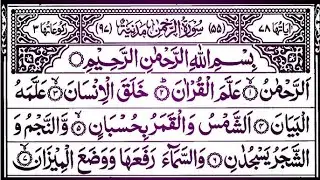 اٰيَاتُهَا ٧٨ (٥٥) سُوْرَةُ الرَّحْمٰنِ مَدَنِيَّةٌ (٩٧) رُكُوْعَاتُهَا ٣
بِسْمِ اللهِ الرَّحْمٰنِ الرَّحِيْمِ
اَلرَّحْمٰنُ ۝١ عَلَّمَ الْقُرْاٰنَ ۝٢ خَلَقَ الْاِنْسَانَ ۝٣ عَلَّمَهُ
الْبَيَانَ ۝٤ اَلشَّمْسُ وَالْقَمَرُ بِحُسْبَانٍ ۝٥ وَّالنَّجْمُ وَ
الشَّجَرُ يَسْجُدٰنِ ۝٦ وَالسَّمَآءَ رَفَعَهَا وَوَضَعَ الْمِيْزَانَ ۝٧